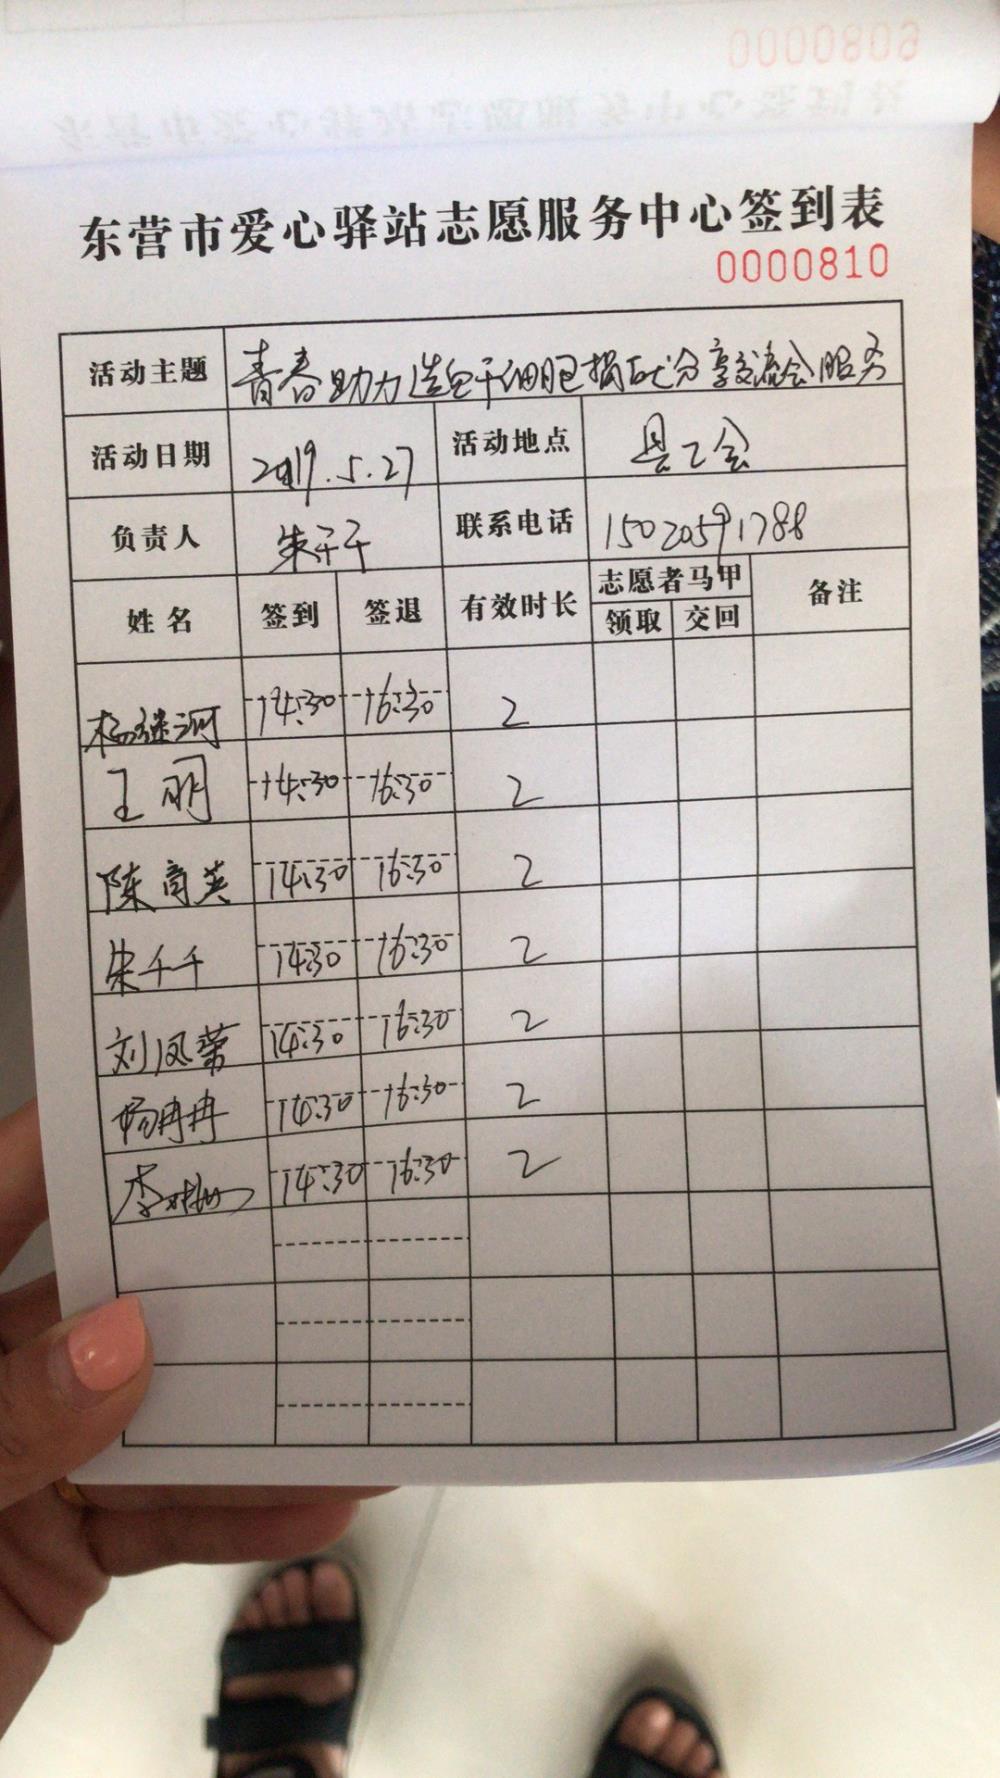 0000809
东营市爱心驿站志愿服务中心签到表
0000810
活动主题 青春助力造血干细胞捐献分享交流会服务
活动日期 2019.5.27 活动地点 县工会
负责人 朱千千 联系电话 15020591788
姓名 签到 签退 有效时长 志愿者马甲 备注
领取 交回
杨继河 14:30 16:30 2
王明 14:30 16:30 2
陈育英 14:30 16:30 2
朱千千 14:30 16:30 2
刘凤荣 14:30 16:30 2
杨冉冉 14:30 16:30 2
李 14:30 16:30 2